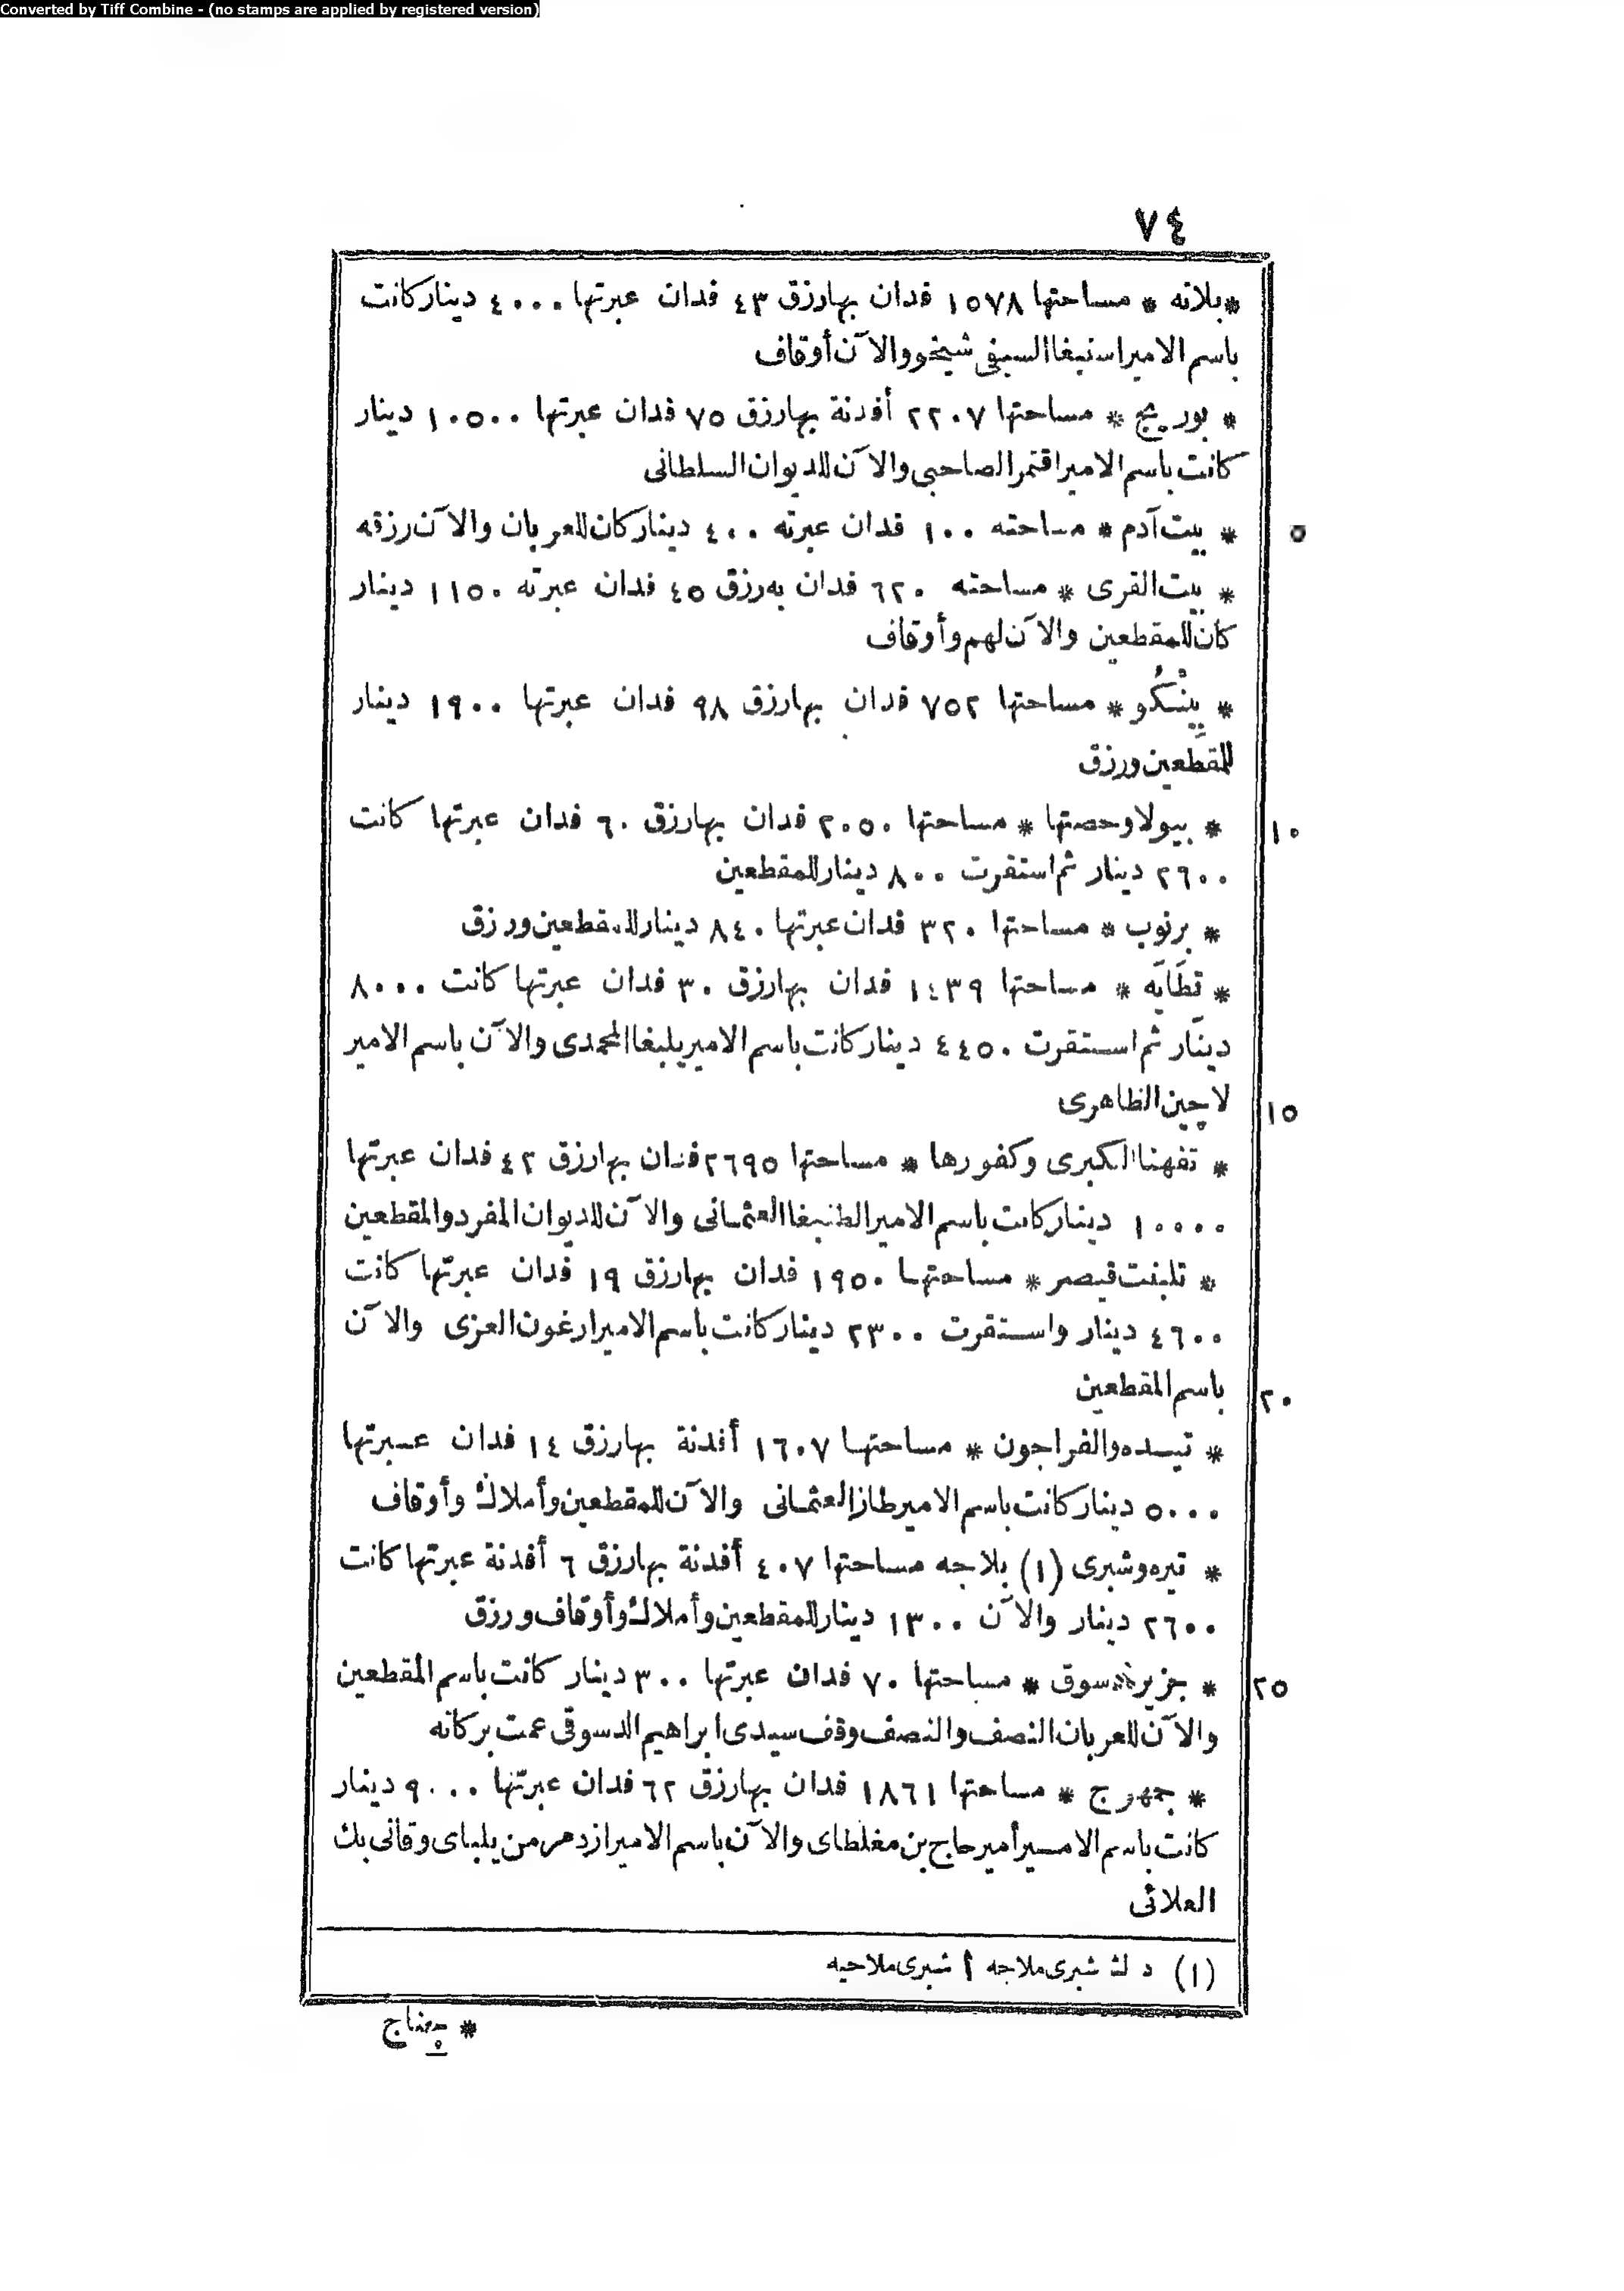 Converted by Tiff Combine - (no stamps are applied by registered version)
٧٤
* بلانه * مساحتها ١٥٧٨ فدان بها رزق ٤٣ فدان عبرتها ٤٠٠٠ دينار كانت
باسم الامير اسنبغا السيفى شيخو والآن أوقاف
* بوريج * مساحتها ٢٢٠٧ أفدنة بها رزق ٧٥ فدان عبرتها ١٠٥٠٠ دينار
كانت باسم الامير اقتمر الصاحبى والآن للديوان السلطانى
* بيت آدم * مساحته ١٠٠ فدان عبرته ٤٠٠ دينار كان للعربان والآن رزقه
٥
* بيت القرى * مساحته ٦٢٠ فدان به رزق ٤٥ فدان عبرته ١١٥٠ دينار
كان للمقطعين والآن لهم وأوقاف
* بِيِنْشكُو * مساحتها ٧٥٢ فدان بها رزق ٩٨ فدان عبرتها ١٩٠٠ دينار
للمقطعين ورزق
* بيولا وحصتها * مساحتها ٢٠٥٠ فدان بها رزق ٦٠ فدان عبرتها كانت
١٠
٢٩٠٠ دينار ثم استقرت ٨٠٠ دينار للمقطعين
* برنوب * مساحتها ٣٢٠ فدان عبرتها ٨٤٠ دينار للمقطعين ورزق
* قطَايَه * مساحتها ١٤٣٩ فدان بها رزق ٣٠ فدان عبرتها كانت ٨٠٠٠
دينار ثم استقرت ٤٤٥٠ دينار كانت باسم الامير يلبغا المحمدى والآن باسم الامير
لاچين الظاهرى
١٥
* تفهنا الكبرى وكفورها * مساحتها ٢٦٩٥ فدان بها رزق ٤٢ فدان عبرتها
١٠٠٠٠ دينار كانت باسم الامير الطنبغا العثمانى والآن للديوان المفرد والمقطعين
* تلبنت قيصر * مساحتها ١٩٥٠ فدان بها رزق ١٩ فدان عبرتها كانت
٤٦٠٠ دينار واستقرت ٢٣٠٠ دينار كانت باسم الامير ارغون العزى والآن
باسم المقطعين
٢٠
* تيسده والفراجون * مساحتها ١٦٠٧ أفدنة بها رزق ١٤ فدان عبرتها
٥٠٠٠ دينار كانت باسم الامير طاز العثمانى والآن للمقطعين وأملاك وأوقاف
* تيره وشبرى (١) بلاجه مساحتها ٤٠٧ أفدنة بها رزق ٦ أفدنة عبرتها كانت
٢٦٠٠ دينار والآن ١٣٠٠ دينار للمقطعين وأملاك وأوقاف ورزق
* جزيرة دسوق * مساحتها ٧٠ فدان عبرتها ٣٠٠ دينار كانت باسم المقطعين
٢٥
والآن للعربان النصف والنصف وقف سيدى ابراهيم الدسوقى عمت بركاته
* جمهرج * مساحتها ١٨٦١ فدان بها رزق ٦٢ فدان عبرتها ٩٠٠٠ دينار
كانت باسم الامير أمير حاج بن مغلطاى والآن باسم الامير ازدمر من يلباى وقانى بك
العلائى
(١) د ك شبرى ملاجه أ شبرى ملاحيه